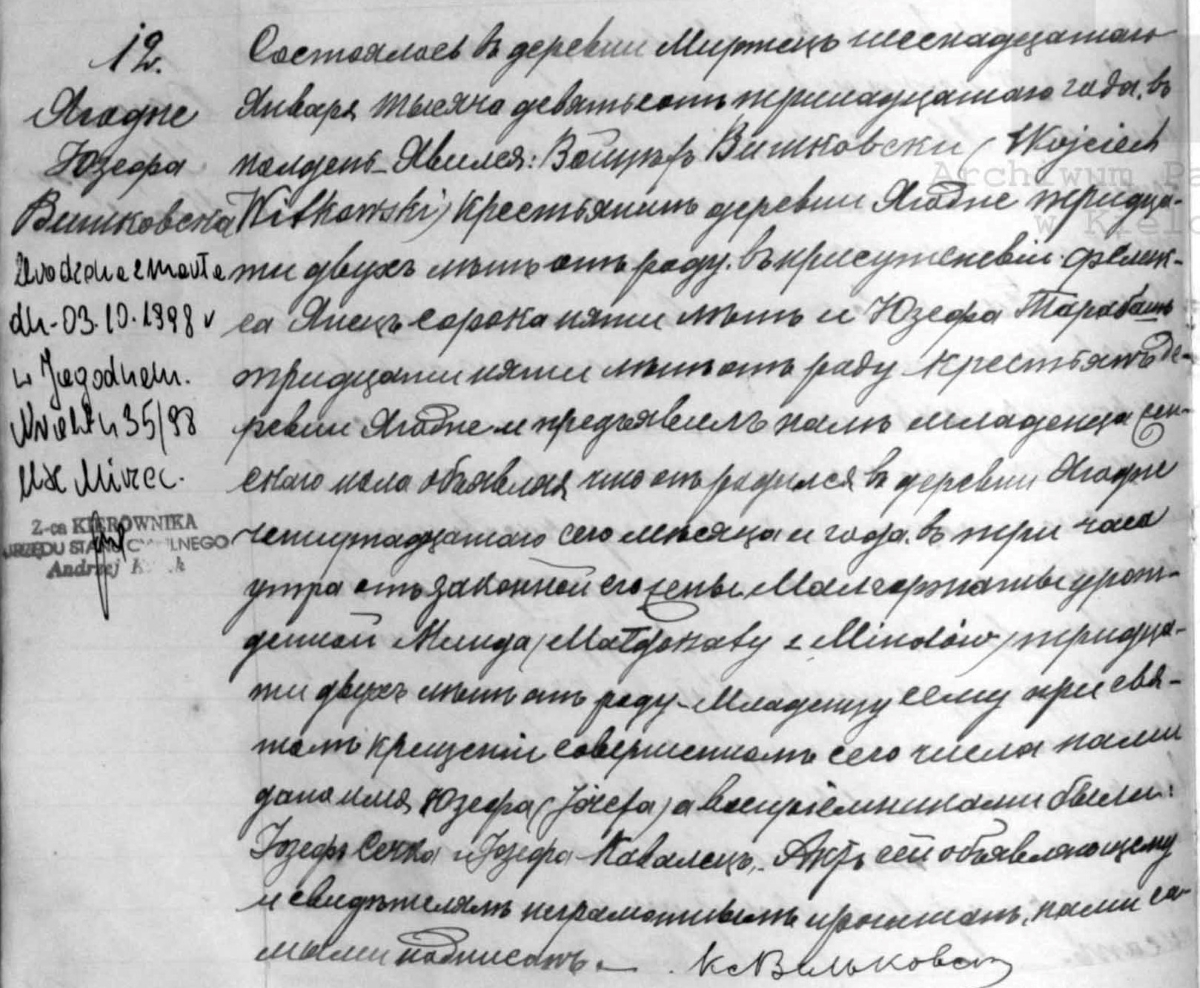 12.
Ягодне
Юзефа
Витковска
dn. 03.10.1998 r
w Jagodnem.
35/98
USC Mirzec.
Z-ca KIEROWNIKA
URZĘDU STANU CYWILNEGO
Andrzej
Состоялось въ деревни Миржецъ шеснадцатаго
Января тысяча девятьсотъ тринадцатаго года въ
полдень. Явился: Войцехъ Витковски (Wojciech
Witkowski) крестьянинъ деревни Ягодне тридца-
ти двухъ лѣтъ отъ роду въ присутствіи Фелик-
са Янецъ сорока пяти лѣтъ и Юзефа
тридцати пяти лѣтъ отъ роду крестьянъ де-
ревни Ягодне и предъявилъ намъ младенца жен-
скаго пола объявляя что онъ родился въ деревни Ягодне
четырнадцатаго сего мѣсяца и года въ три часа
утра отъ законной его жены Малгоржаты урож-
денной Минда (Małgorzaty z Mindów) тридца-
ти двухъ лѣтъ отъ роду. Младенцу сему при свя-
томъ крещеніи совершенномъ сего числа нами
дано имя Юзефа (Józefa) а воспріемниками были:
Юзефъ Сечка и Юзефа Ковалецъ. Актъ сей объявляющему
и свидѣтелямъ неграмотнымъ прочитанъ, нами са-
мыми подписанъ.
Archiwum Pa
w Kielc